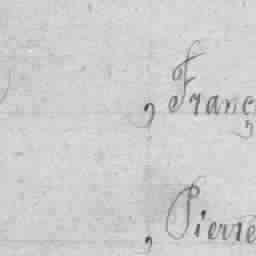 , Franç
, Pierre